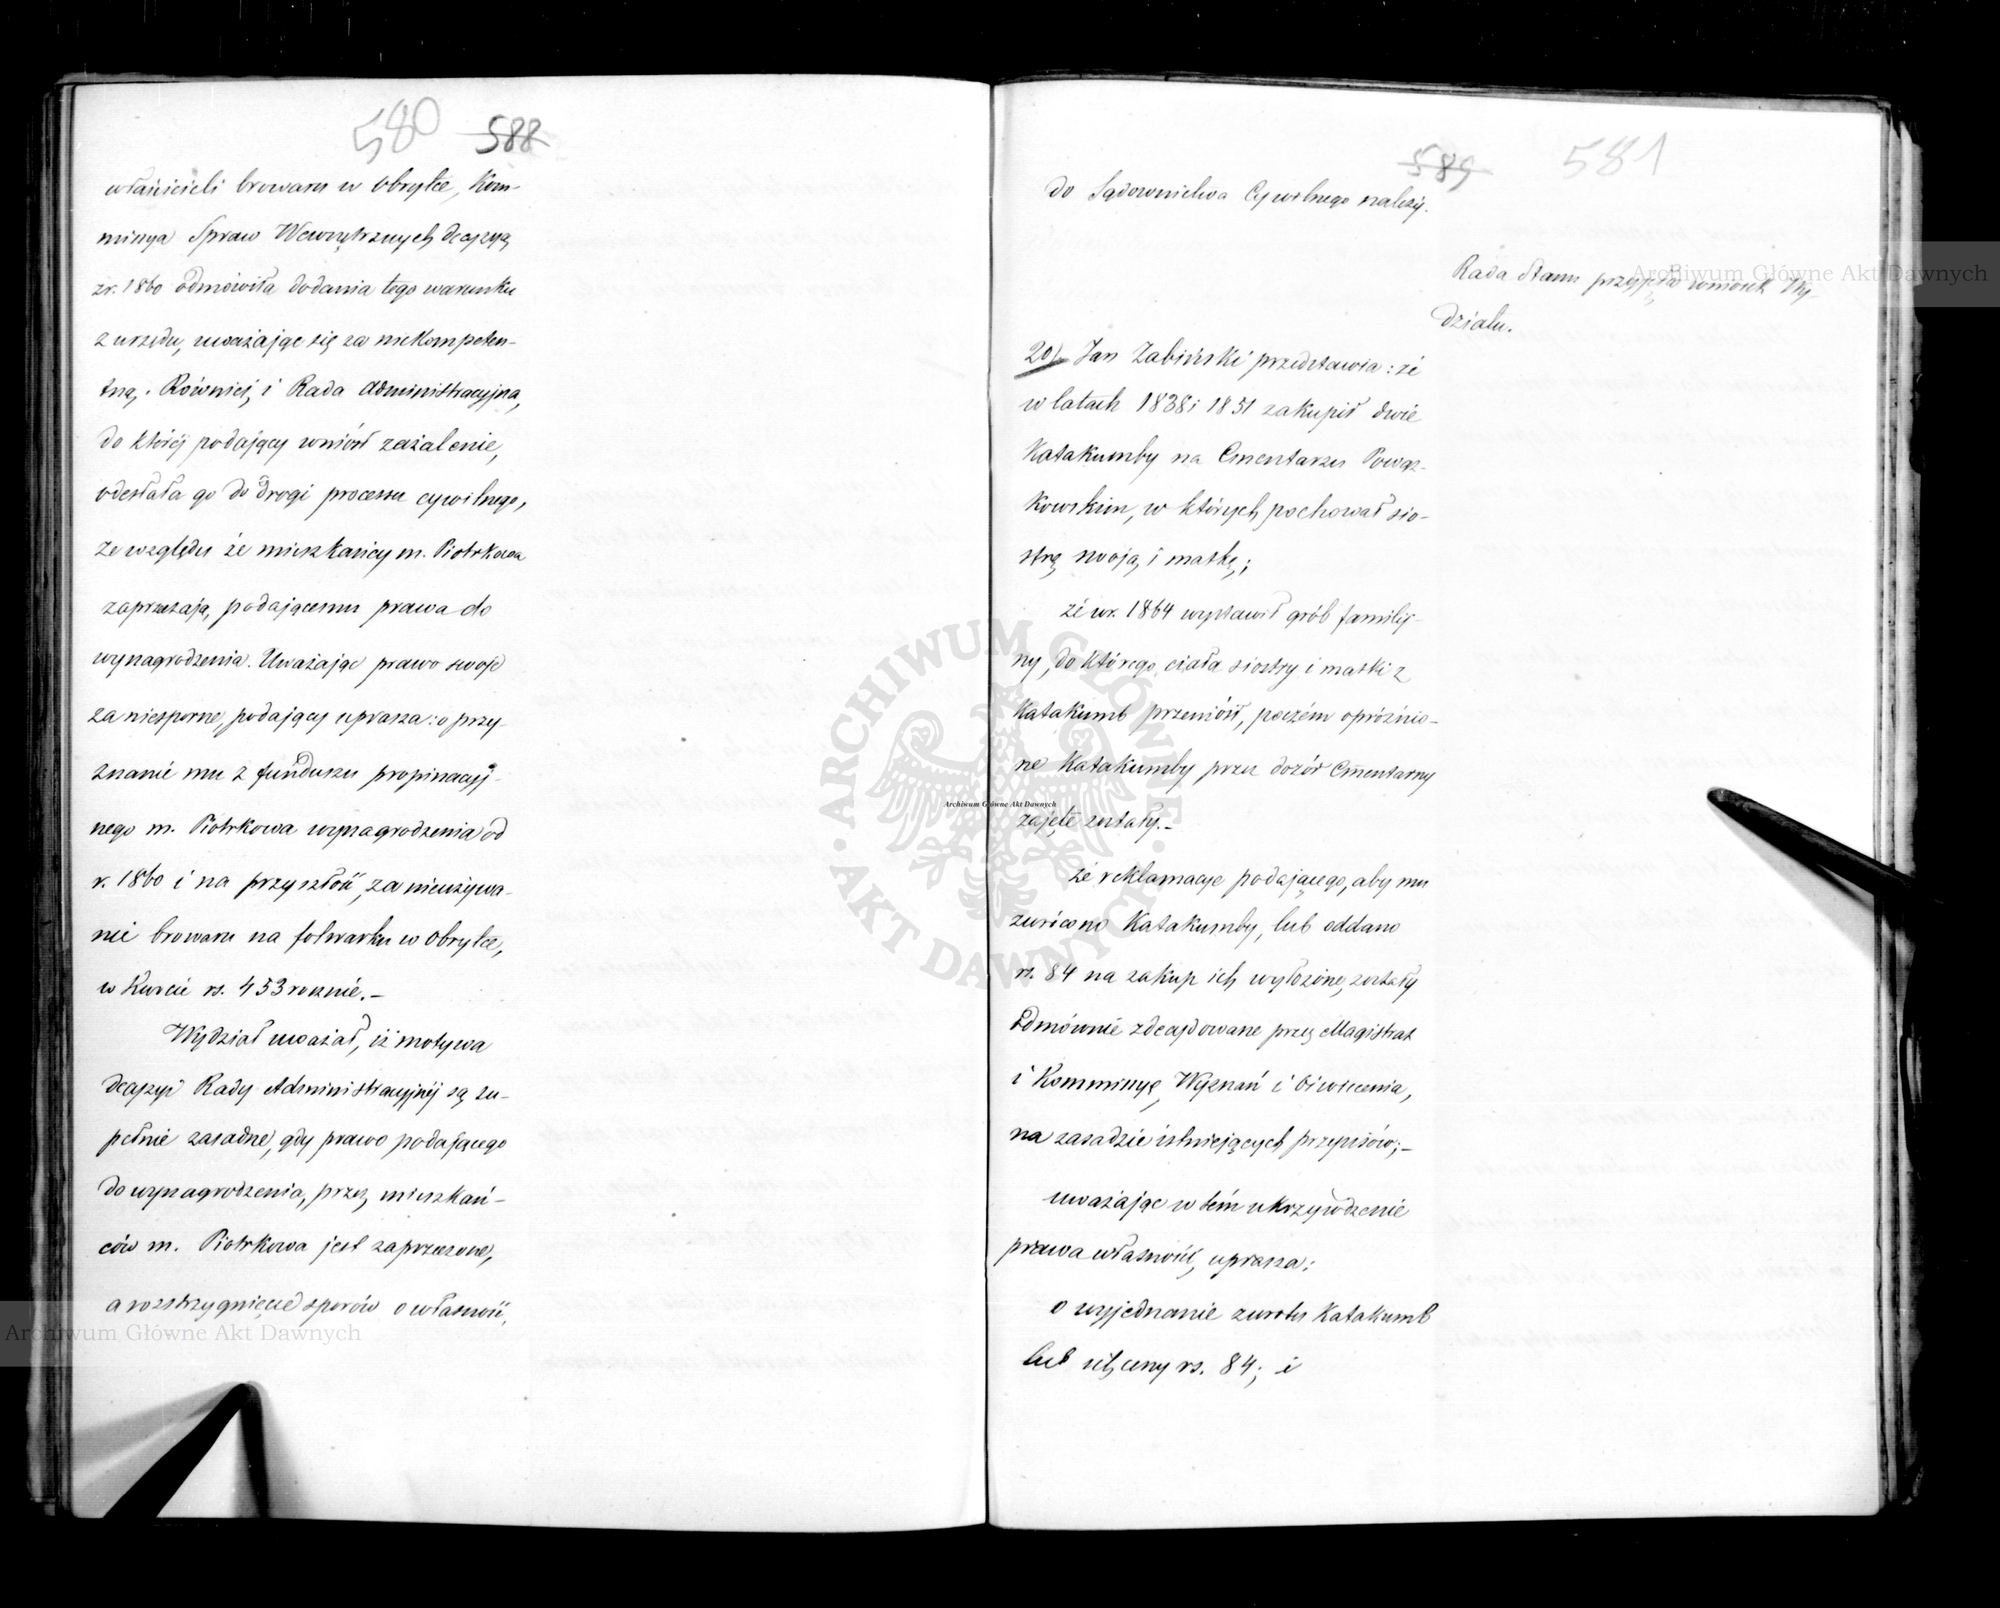 580 588
właścicieli browaru w Obrytce, Kom-
missya Spraw Wewnętrznych decyzyą
z r. 1860 odmówiła dodania tego warunku
z urzędu, uważając się za niekompeten-
tną. Również i Rada Administracyjna,
do której podający wniósł zażalenie,
odesłała go do drogi processu cywilnego,
ze względu że mieszkańcy m. Piotrkowa
zaprzeczają podającemu prawa do
wynagrodzenia. Uważając prawo swoje
za niesporne, podający uprasza: o przy-
znanie mu z funduszu propinacyj-
nego m. Piotrkowa wynagrodzenia od
r. 1860 i na przyszłość, za nieużywa-
nie browaru na folwarku w Obrytce,
w kwocie rs. 453 rocznie. –
Wydział uważał, iż motywa
decyzyi Rady Administracyjnéj są zu-
pełnie zasadne, gdy prawo podającego
do wynagrodzenia, przez mieszkań-
ców m. Piotrkowa jest zaprzeczone,
a rozstrzygnięcie sporów o własność,
589 581
do Sądownictwa Cywilnego należy.
Rada Stanu przyjęła wniosek Wy-
działu.
20) Jan Żabiński przedstawia: że
w latach 1838 i 1851 zakupił dwie
Katakumby na Cmentarzu Powąz-
kowskim, w których pochował sio-
strę swoją i matkę;
że w r. 1864 wystawił grób familij-
ny, do którego ciała siostry i matki z
Katakumb przeniósł, poczém opróżnio-
ne Katakumby przez dozór Cmentarny
zajęte zostały. –
że reklamacye podającego, aby mu
zwrócono Katakumby, lub oddano
rs. 84 na zakup ich wyłożone, zostały
odmównie zdecydowane przez Magistrat
i Kommissyę Wyznań i Oświecenia,
na zasadzie istniejących przepisów; –
uważając w tém ukrzywdzenie
prawa własności, uprasza:
o wyjednanie zwrotu Katakumb
lub ich ceny rs. 84; i
Archiwum Główne Akt Dawnych
Archiwum Główne Akt Dawnych
Archiwum Główne Akt Dawnych
ARCHIWUM GŁÓWNE AKT DAWNYCH